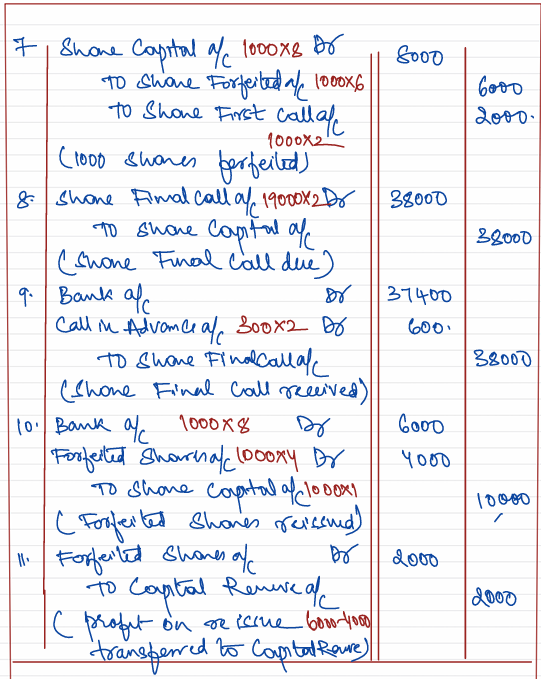 7 Share Capital a/c 1000×8 Dr 8000
To Share Forfeited a/c 1000×6 6000
To Share First Call a/c 2000.
1000×2
(1000 shares forfeited)
8. Share Final Call a/c 19000×2 Dr 38000
To Share Capital a/c 38000
(Share Final Call due)
9. Bank a/c Dr 37400
Call in Advance a/c 300×2 Dr 600.
To Share Final Call a/c 38000
(Share Final Call received)
10. Bank a/c 1000×8 Dr 6000
Forfeited Shares a/c 1000×4 Dr 4000
To Share Capital a/c 1000×1 10000
(Forfeited Shares reissued)
11. Forfeited Shares a/c Dr 2000
To Capital Reserve a/c 2000
(profit on re issue 6000-4000
transferred to Capital Reserve)